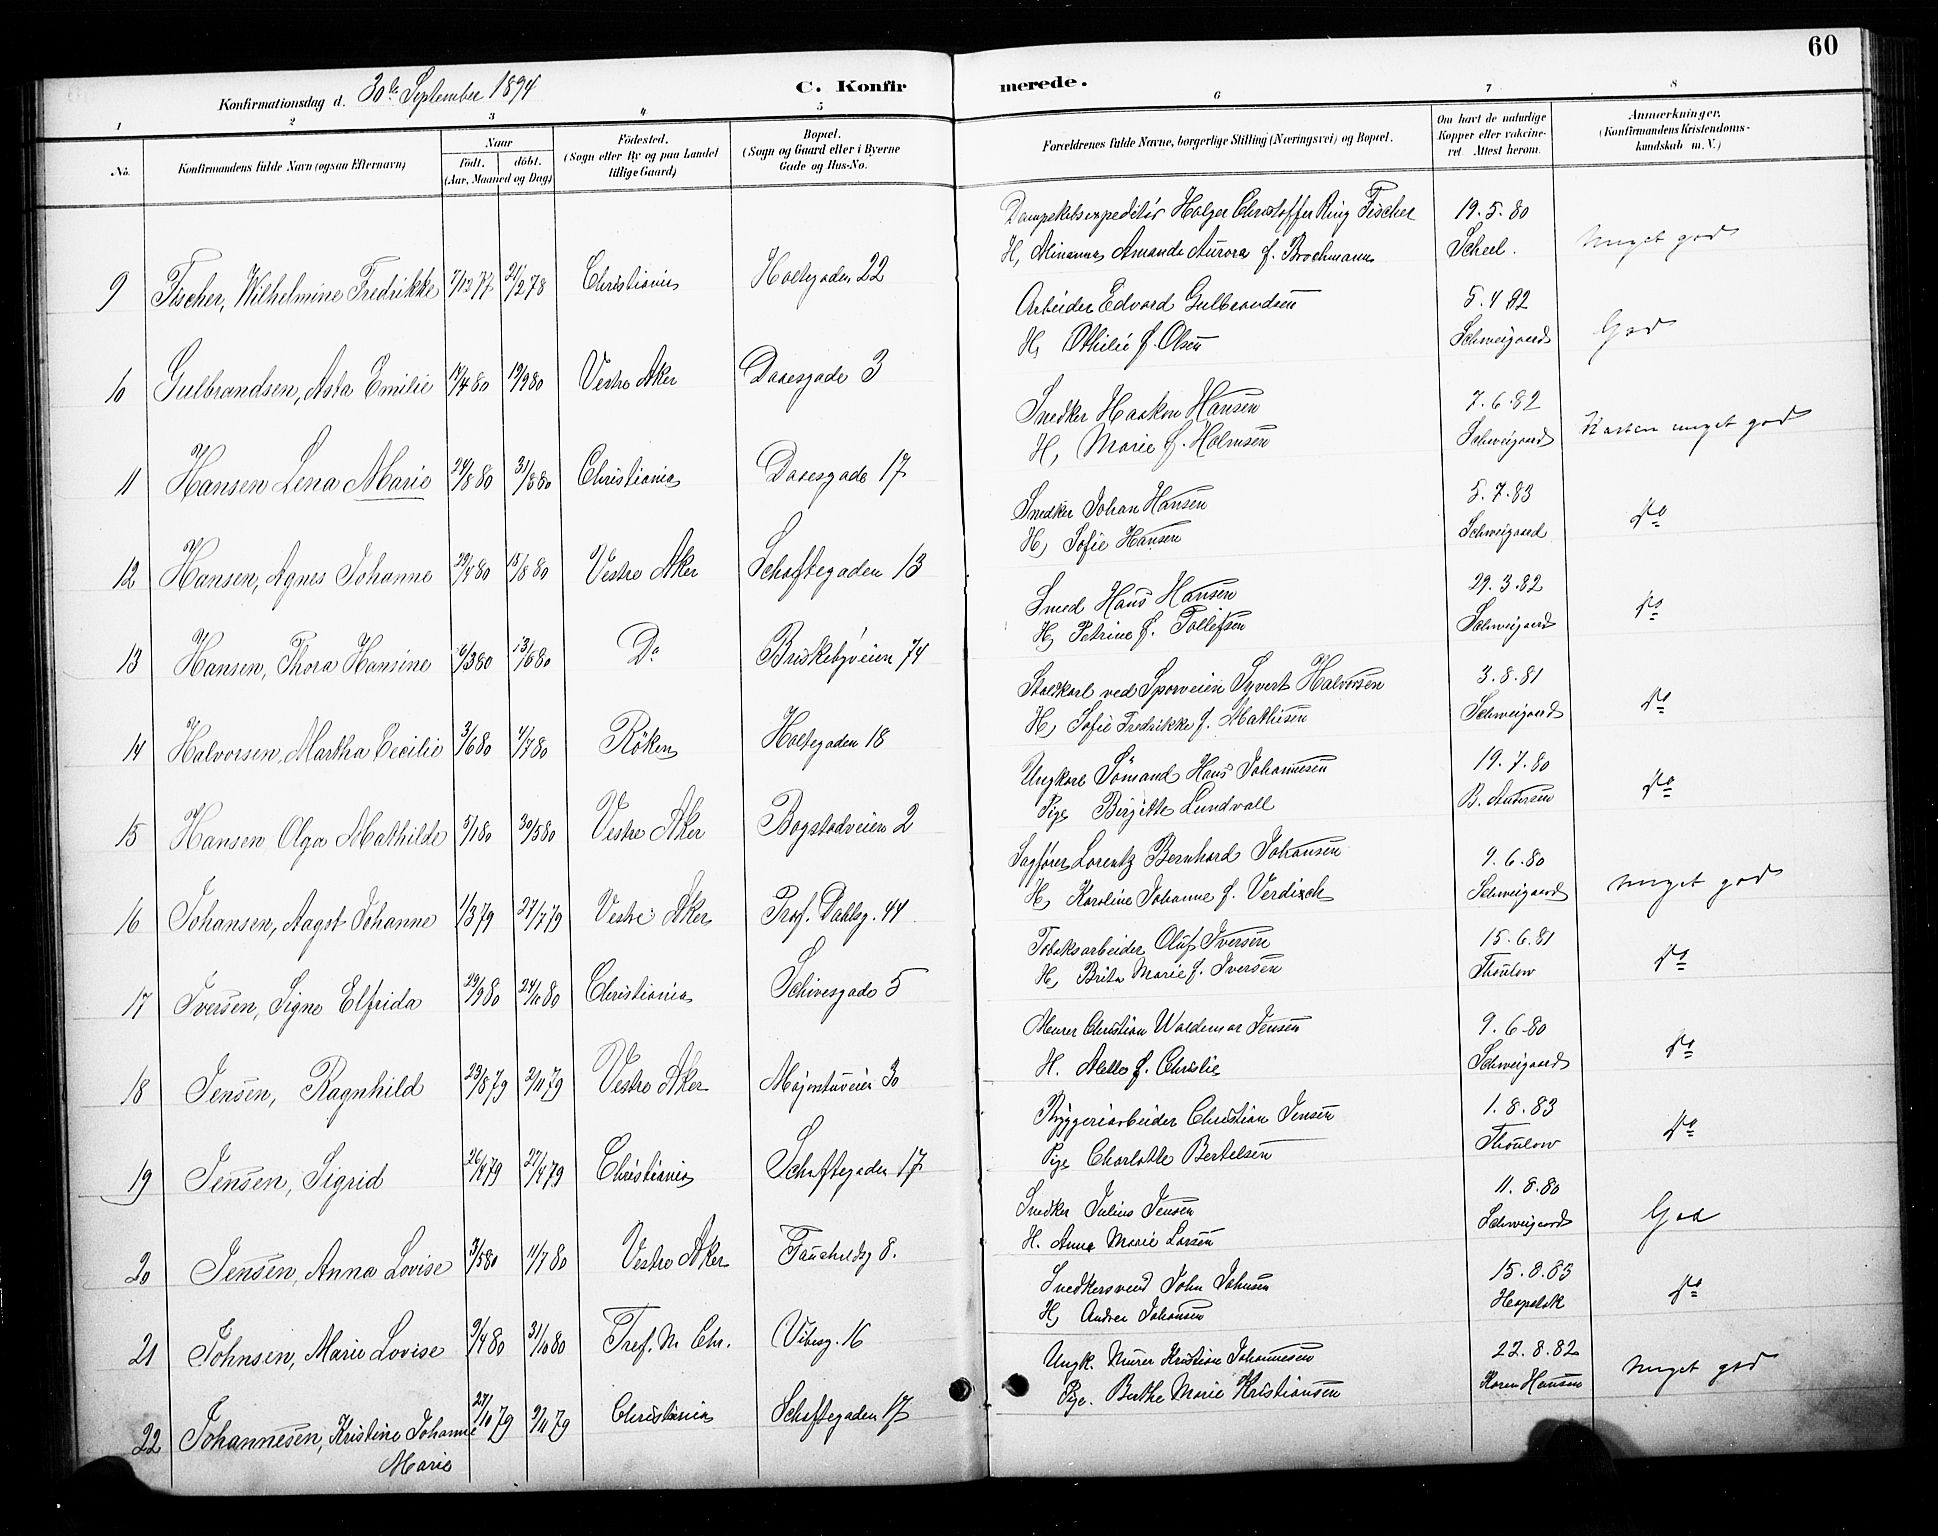 60
Konfirmationsdag d. 30te September 1894
C. Konfirmerede.
1 2 3 4 5 6 7 8
No. Konfirmandens fulde Navn (ogsaa Efternavn) Naar født. døbt. (Aar, Maaned og Dag) Fødested. (Sogn eller By og paa Landet tillige Gaard) Bopæl. (Sogn og Gaard eller i Byerne Gade og Hus-No. Forældrenes fulde Navne, borgerlige Stilling (Næringsvei) og Bopæl. Om havt de naturlige Kopper eller vakcineret. Attest herom. Anmærkninger. (Konfirmandens Kristendomskundskab m.V.)
9 Fischer, Wilhelmine Fredrikke 7/12 77 21/2 78 Christiania Holtegaden 22 Dampskibsexpeditør Holger Christoffer Ring Fischer 19.5.80 Meget god
H, Minanna Amanda Aurora f. Brochmann Scheel.
10 Gulbrandsen, Asta Emilie 14/4 80 19/9 80 Vestre Aker Daaesgade 3 Arbeider Edvard Gulbrandsen 5.4.82 God
H, Othilie f. Olsen Schweigaard
11 Hansen Lena Marie 24/8 80 31/8 80 Christiania Daaesgade 17 Snedker Haakon Hansen 7.6.82 Næsten meget god
H, Marie f. Holmsen Schweigaard
12 Hansen, Agnes Johanne 29/4 80 15/8 80 Vestre Aker Schaftegaden 13 Snedker Johan Hansen 5.7.83 do
H, Sofie Hansen Schweigaard
13 Hansen, Thora Hansine /3 80 13/6 80 Do Briskebyveien 74 Smed Hans Hansen 29.3.82 do
H, Petrine f. Tollefsen Schweigaard
14 Halvorsen, Martha Cecilie 3/6 80 4/7 80 Røken Holtegaden 18 Staldkarl ved Sporveien Syvert Halvorsen 3.8.81 do
H, Sofie Fredrikke f. Mathisen Schweigaard
15 Hansen, Olga Mathilde 3/1 80 30/5 80 Vestre Aker Bogstadveien 2 Ungkarl Sømand Hans Johannesen 19.7.80 do
Pige Birgitte Lundvall B. Andersen
16 Johansen, Aagot Johanne 1/3 79 27/7 79 Vestre Aker Prof. Dahlsg. 44 Sagfører Lorentz Bernhard Johansen 9.6.80 Meget god
H, Karoline Johanne f. Schweigaard
17 Iversen, Signe Elfrida 29/9 80 24/10 80 Christiania Schivesgade 5 Tobaksarbeider Oluf Iversen 15.6.81 do
H, Brita Marie f. Iversen Thoulow
18 Jensen, Ragnhild 23/8 79 2/11 79 Vestre Aker Majorstuveien 30 Murer Christian Waldemar Jensen 9.6.80 do
H. f. Christie Schweigaard
19 Jensen, Sigrid 26/4 79 27/4 79 Christiania Schaftegaden 17 Bryggeriarbeider Christian Jensen 1.8.83 do
Pige Charlotte Bertelsen Thoulow
20 Jensen, Anna Lovise 3/5 80 11/7 80 Vestre Aker Fauchaldsg 8. Snedker Julius Jensen 11.8.80 God
H. Anna Marie Larsen Schweigaard
21 Johnsen, Marie Lovise 9/4 80 31/10 80 Tref. M. Chr. Vibesg. 16 Snedkersvend John Johnsen 15.8.83 do
H, Andrea Johansen
22 Johannesen, Kristine Johanne Marie 27/10 79 9/11 79 Christiania Schaftegaden 17 Ungk. Murer Kristian Johannesen 22.8.82 Meget god
Pige. Berthe Marie Kristiansen Karen Hansen